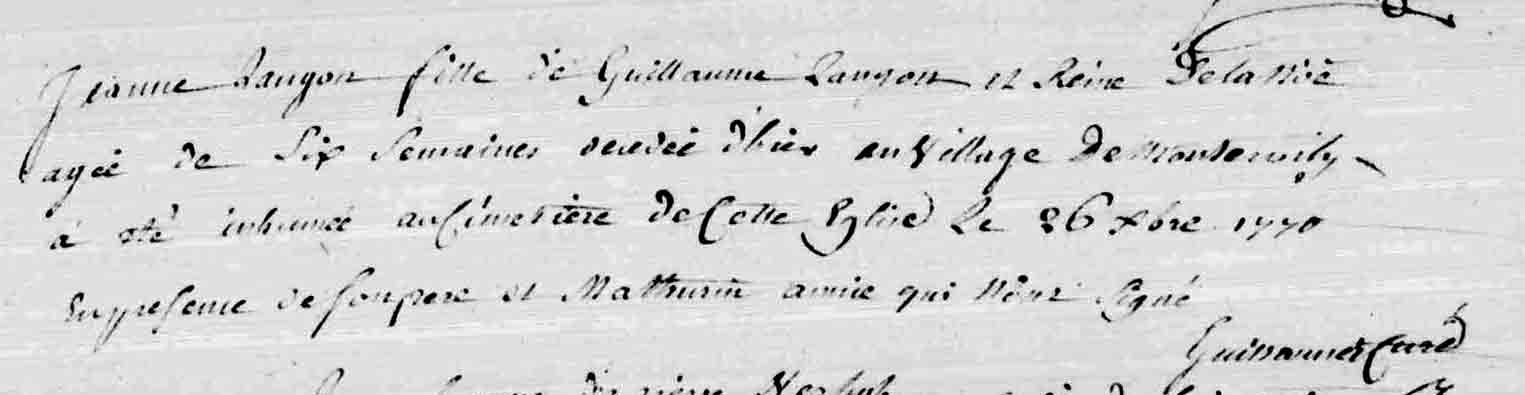 Jeanne Langon fille de Guillaume Langon et Reine Delanöe
agée de Six Semaines decedée d'hier au Village De
a été inhumée au Cimetiere de Cette Eglise Le 26 xbre 1770
En presence de Son pere et Mathurin amice qui n'ont Signé
Curé